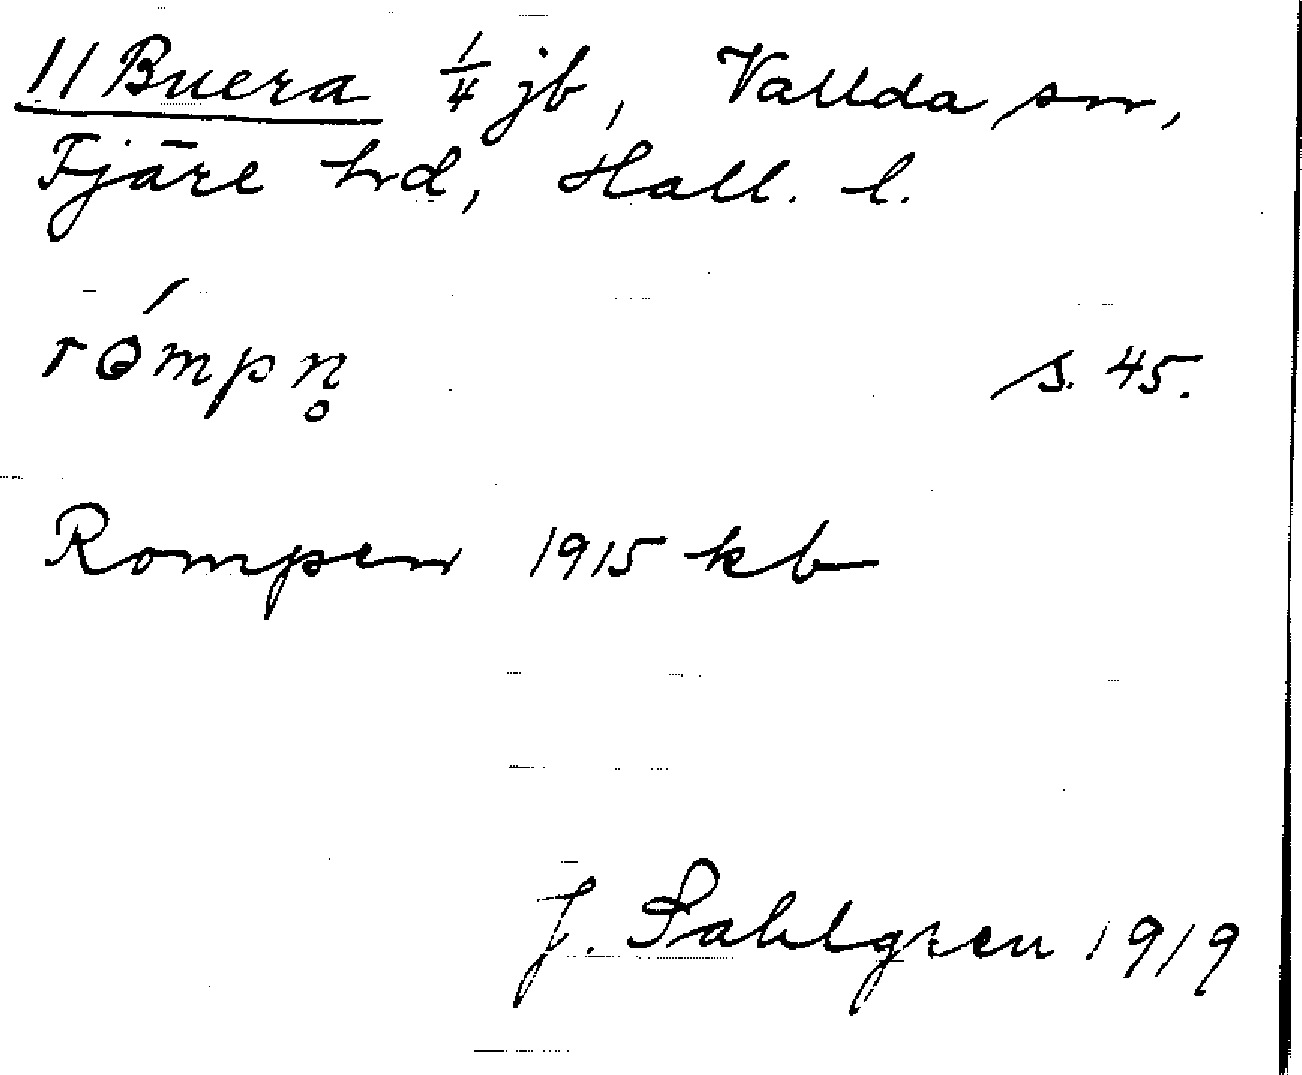 11 Buera 1/4 jb, Vallda sn,
Fjäre hrd, Hall. l.
rómpn̥ s. 45.
Rompen 1915 kb
J. Sahlgren 1919